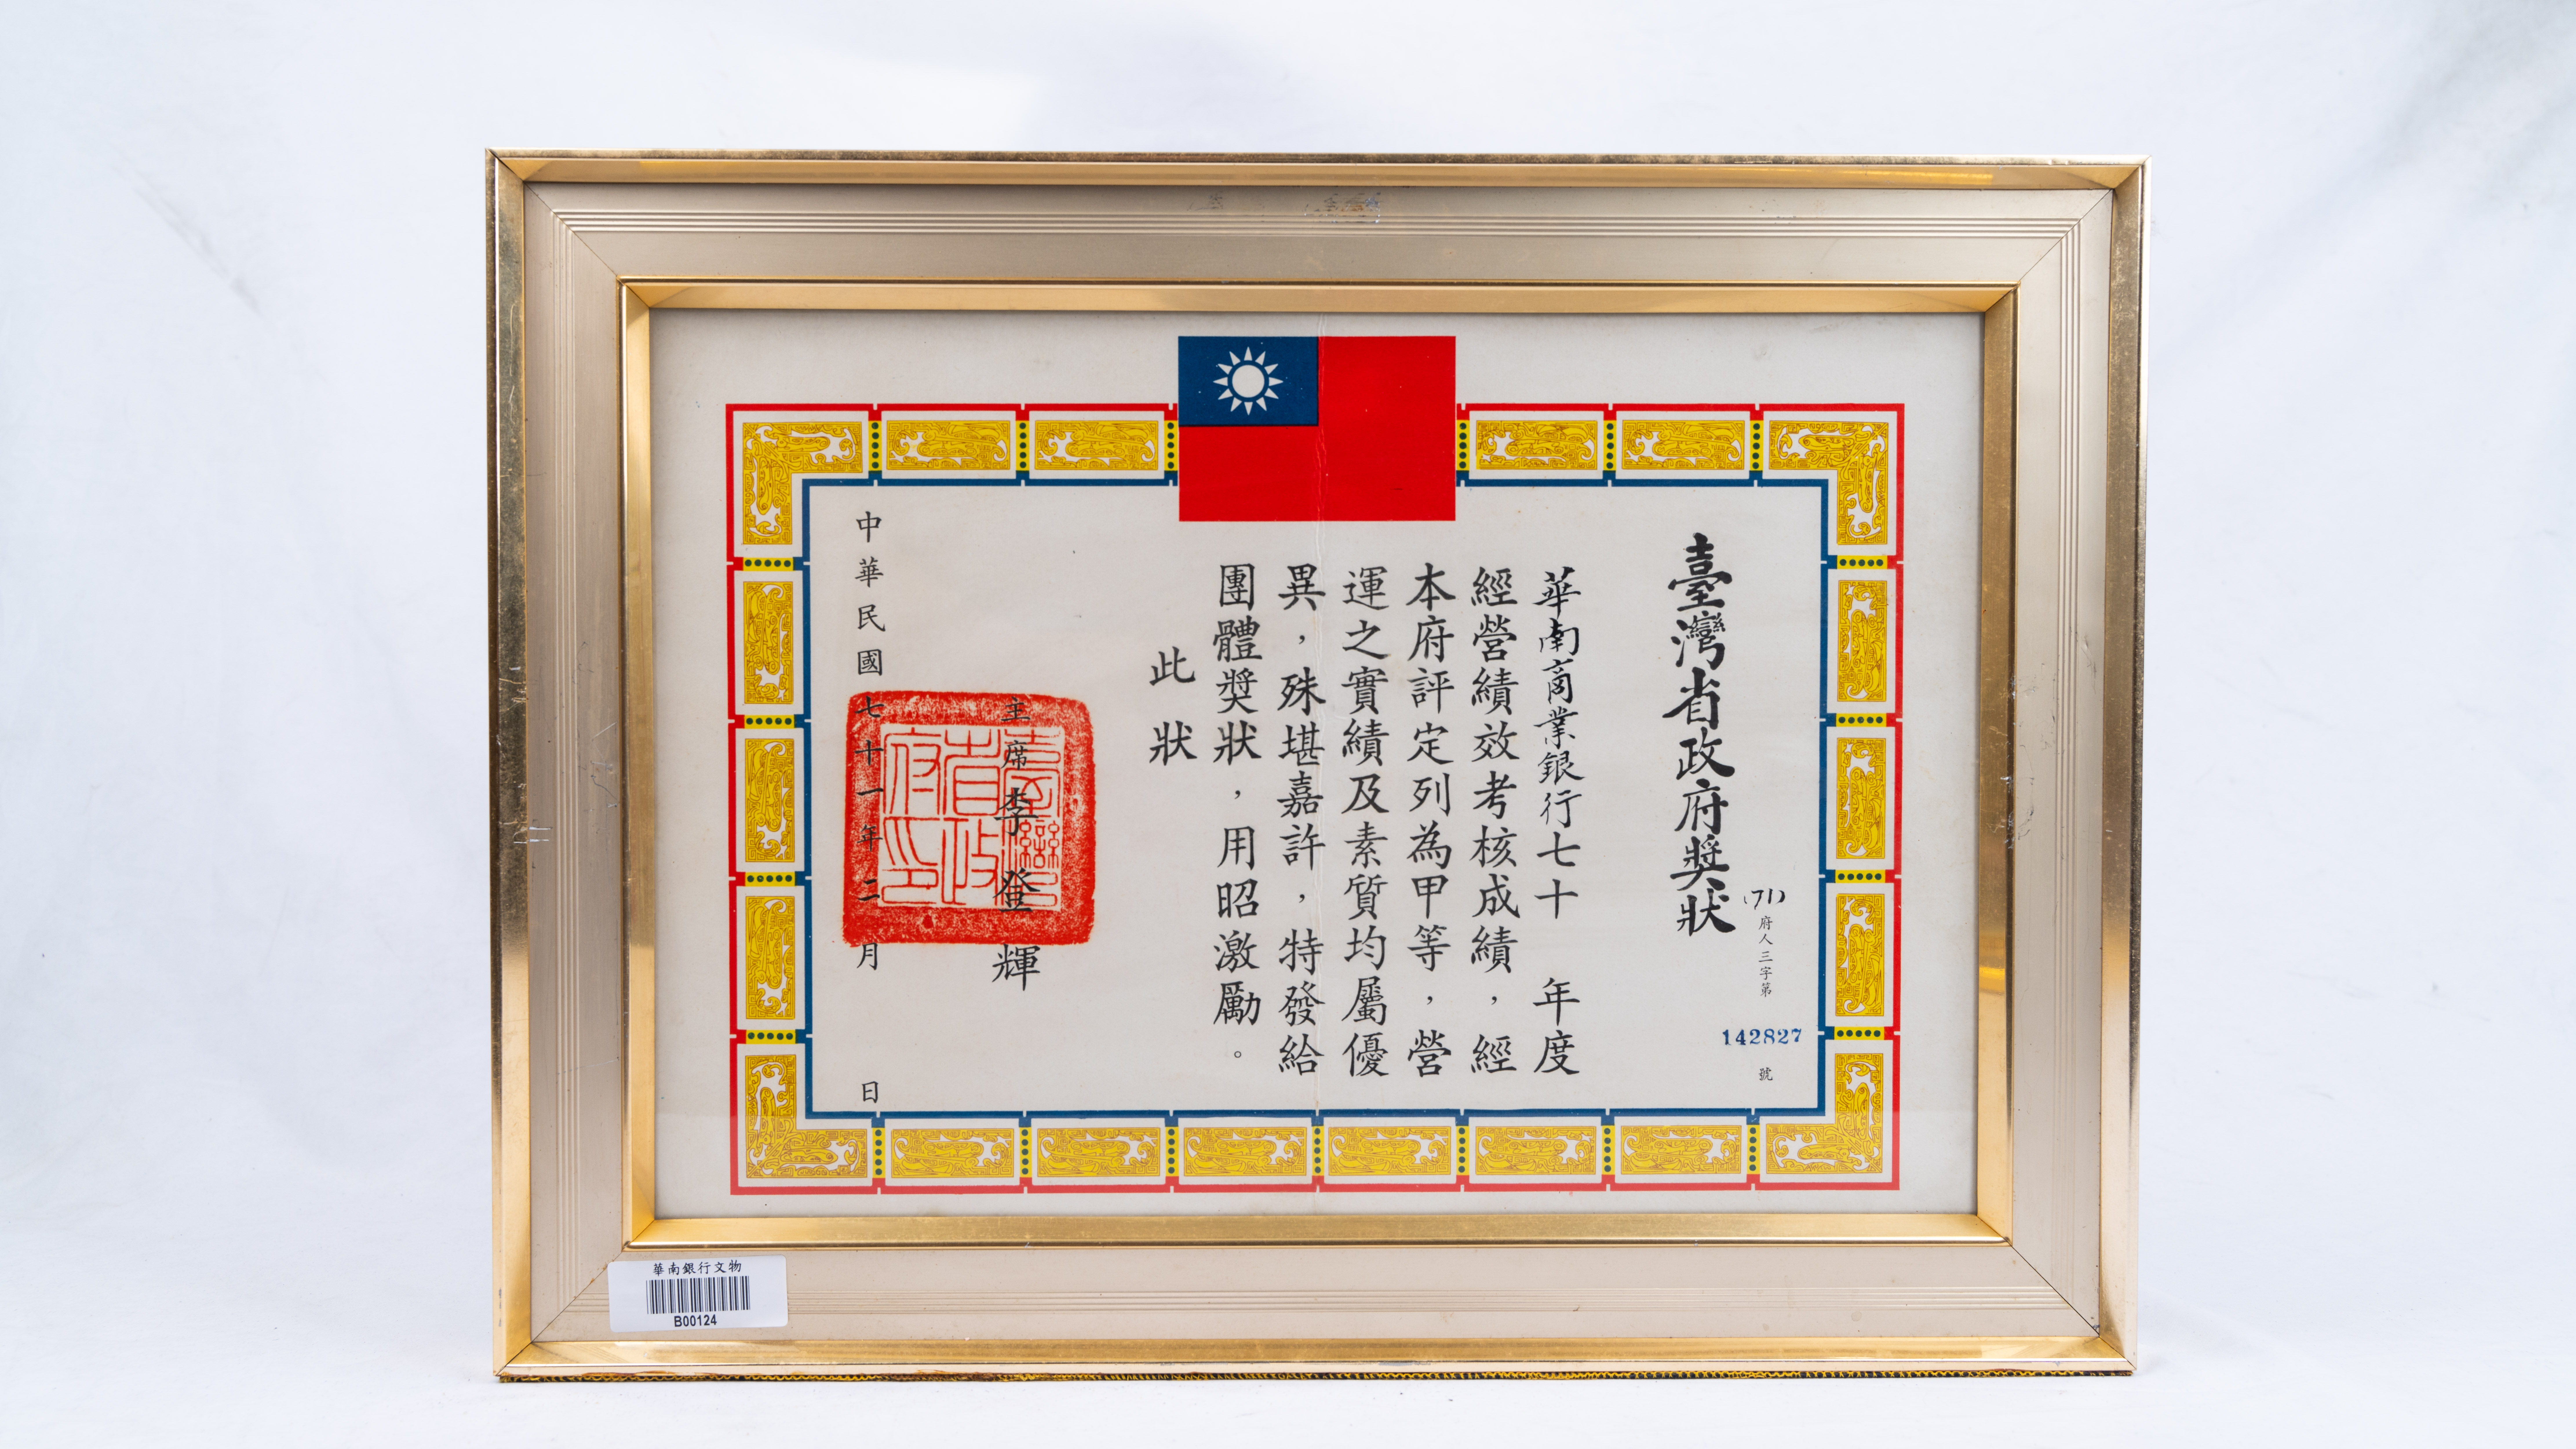 臺灣省政府獎狀
(71)府人三字第142827號
華南商業銀行七十 年度
經營績效考核成績，經
本府評定列為甲等，營
運之實績及素質均屬優
異，殊堪嘉許，特發給
團體獎狀，用昭激勵。
此狀
主席 李登輝
臺灣省政府印
中華民國七十一年二月 日
華南銀行文物
B00124